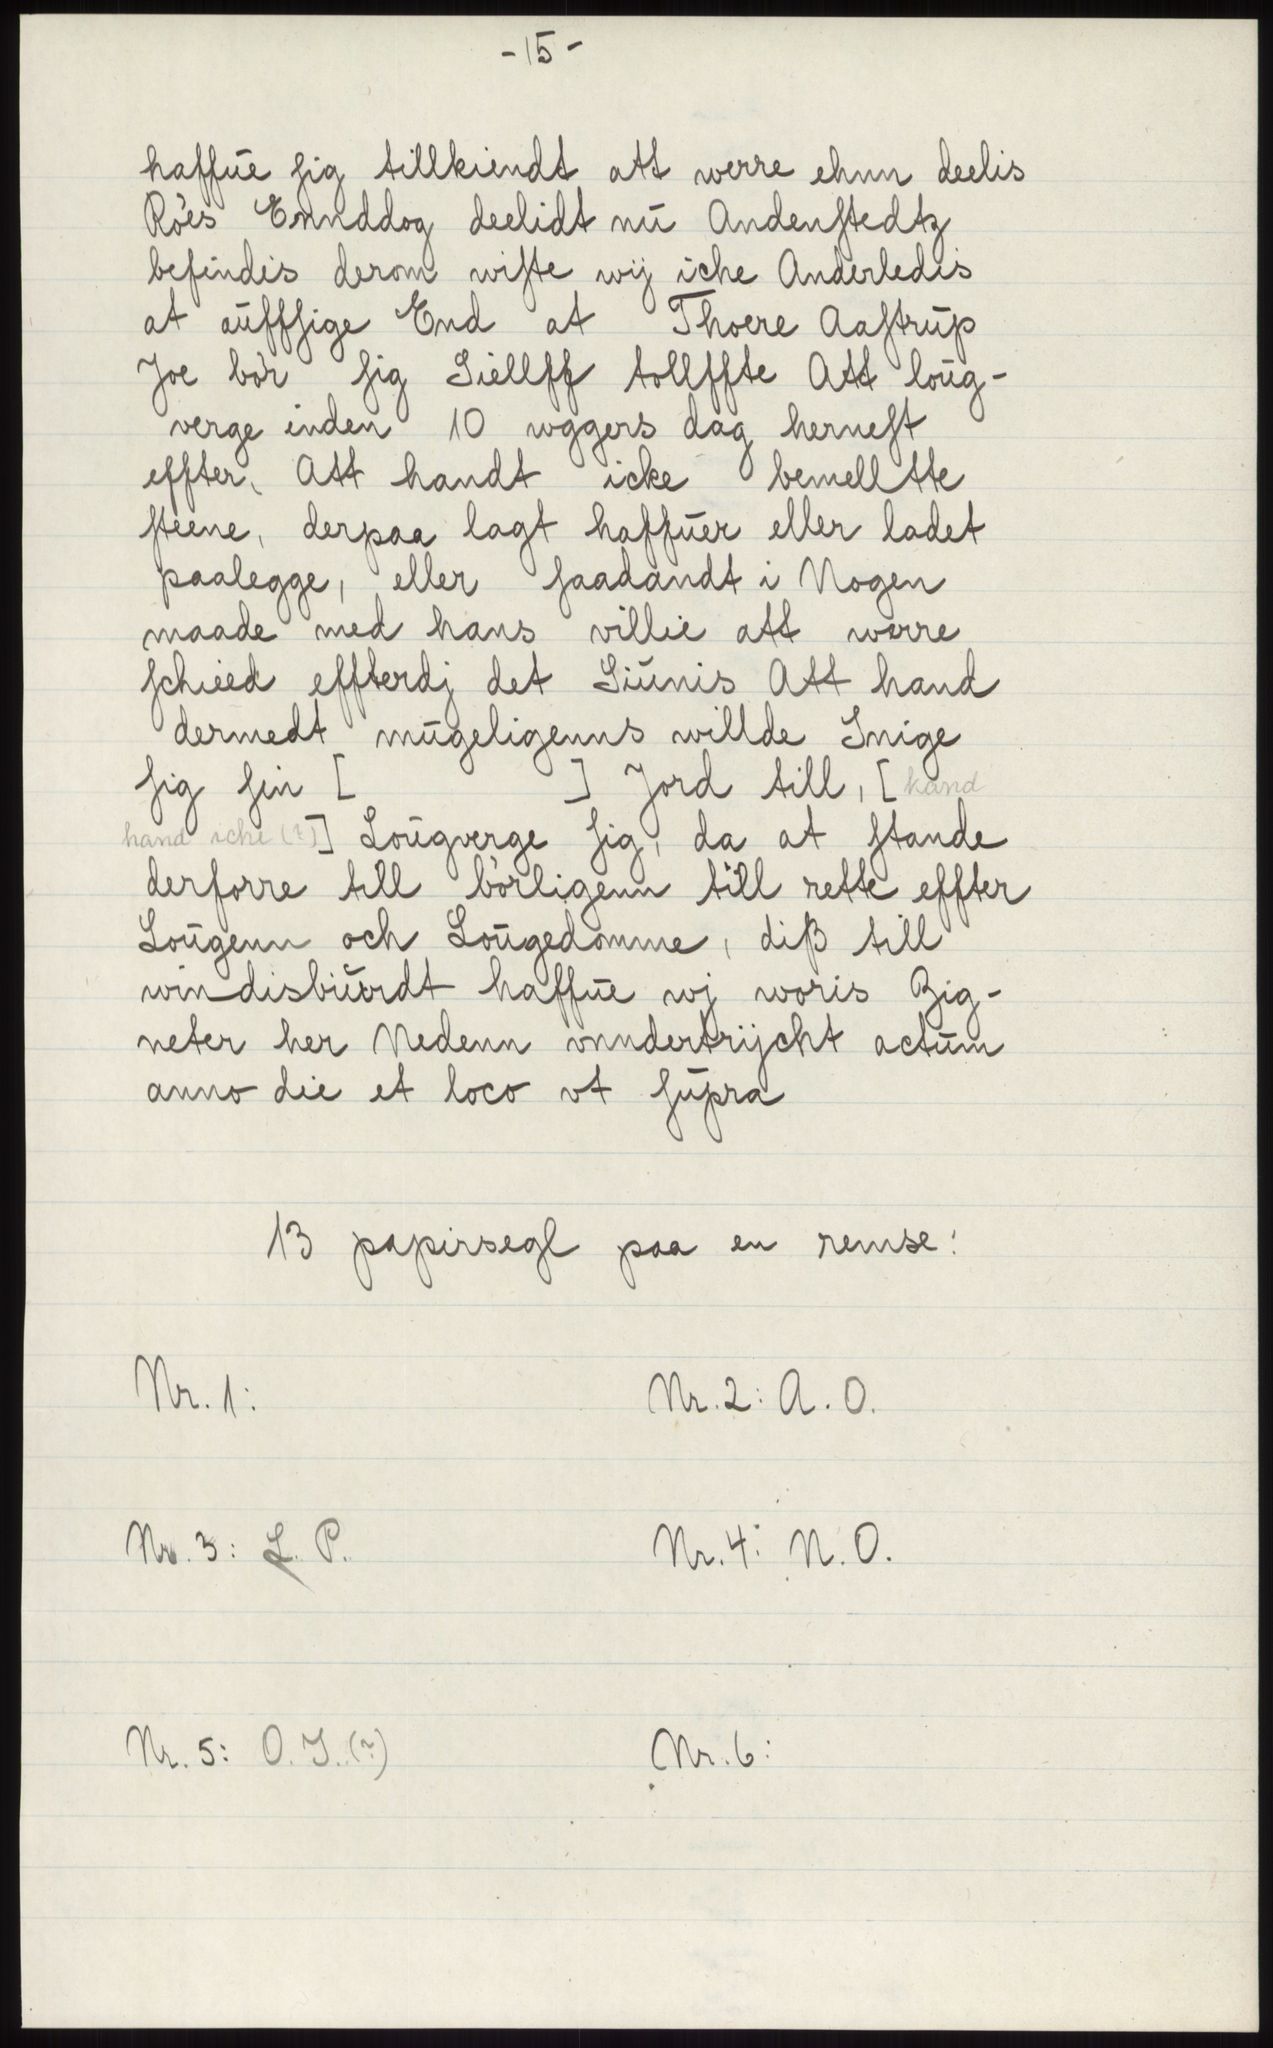 -15-
haffúe sig tillkiendt att werre ehnn deelis
Röes Ennddog deelidt nú Andenstedtz
befindis derom wiste wij iche Anderledis
at aúffsige End at Thoere Aastrúp
Joe bör sig Siellff tollffte Att loúg-
verge inden 10 wggers dag hernest
effter, Att handt icke bemelltte
steene, derpaa lagt haffúer eller ladet
paalegge, eller saadandt i Nogen
maade med hans villie att werre
schieed effterdj det Siúnis Att hand
dermedt múgeligenns willde Snige
sig sin [ ] Jord till, [kand
hand iche (?)] Loúgverge sig, da at stande
derforre till börligenn till rette effter
Loúgenn och Loúgedomme, diß till
windisbúurdt haffúe wj woris Zig-
neter her Nedenn vnndertrijcht actúm
anno die et loco vt súpra
13 papirsegl paa en remse:
Nr. 1: Nr. 2: A. O.
Nr. 3: L. P. Nr. 4: N. O.
Nr. 5: O. I. (?) Nr. 6: